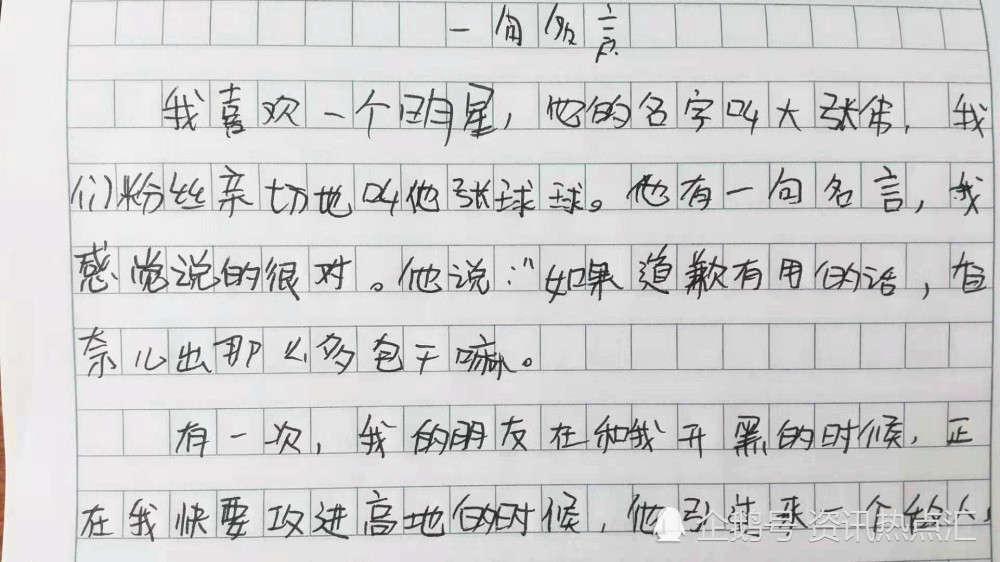 一句名言
我喜欢一个明星，他的名字叫大张伟，我
们粉丝亲切地叫他张球球。他有一句名言，我
感觉说的很对。他说：“如果道歉有用的话，香
奈儿出那么多包干嘛。
有一次，我的朋友在和我开黑的时候，正
在我快要攻进高地的时候，他引来一个
企鹅号 资讯热点汇